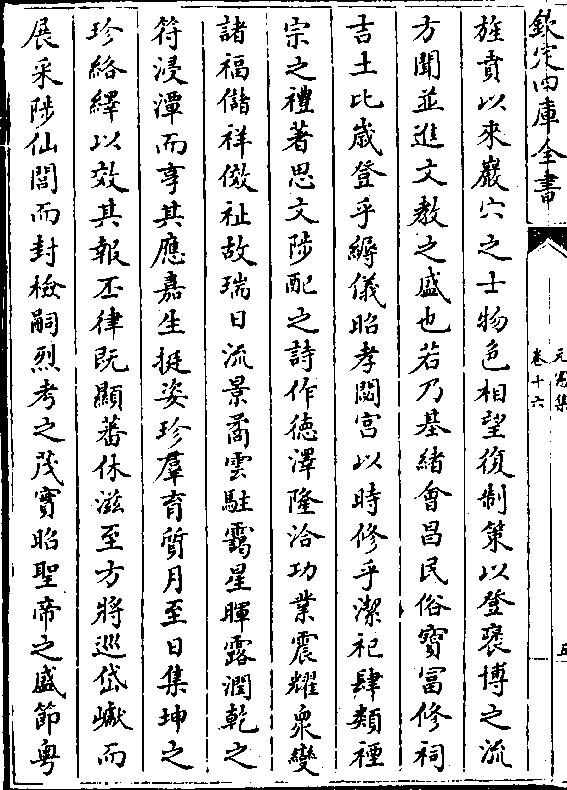 欽定四庫全書
元憲集
卷十六
五
旌賁以來巖穴之士物色相望復制策以登褒博之流
方聞並進文教之盛也若乃基緒會昌民俗寳富修祠
吉土比歲登乎縟儀昭孝閟宫以時修乎潔祀肆類禋
宗之禮著思文陟配之詩作徳澤隆洽功業震耀衆變
諸福儲祥儌祉故瑞日流景矞雲駐靄星暉露潤乾之
符浸潭而享其應嘉生挺姿珍羣育質月至日集坤之
珍絡繹以效其報丕律既顯蕃休滋至方將巡岱巘而
展采陟仙閭而封檢嗣烈考之茂實昭聖帝之盛節粤